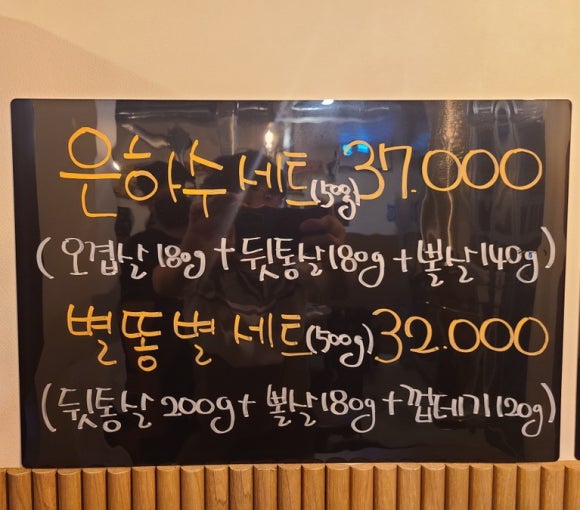 은하수 세트(500g) 37.000
(오겹살 180g + 뒷통살 180g + 뽈살 140g)
별똥별 세트(500g) 32.000
(뒷통살 200g + 뽈살 180g + 껍데기 120g)